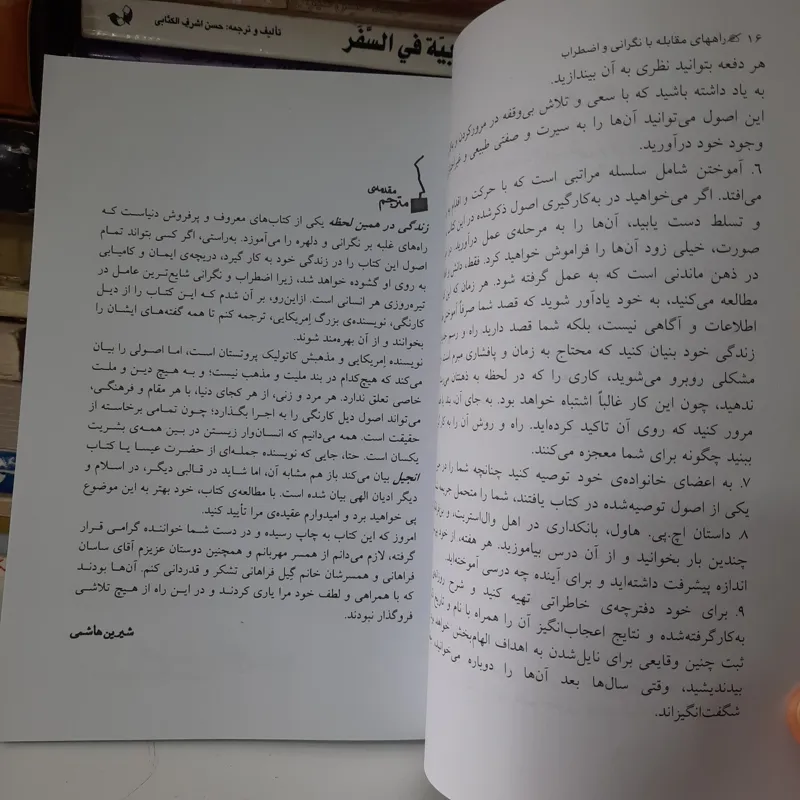 تألیف و ترجمه: حسن اشرف الکتّابی
بيّة في السَّفَر
۱۶ راههای مقابله با نگرانی و اضطراب
هر دفعه بتوانید نظری به آن بیندازید.
به یاد داشته باشید که با سعی و تلاش بی‌وقفه در مرورکردن و
این اصول می‌توانید آن‌ها را به سیرت و صفتی طبیعی و
وجود خود درآورید.
۶. آموختن شامل سلسله مراتبی است که با حرکت و اقدام
می‌افتد. اگر می‌خواهید در به‌کارگیری اصول ذکرشده در این
و تسلط دست یابید، آن‌ها را به مرحله‌ی عمل درآورید. در
صورت، خیلی زود آن‌ها را فراموش خواهید کرد. فقط،
در ذهن ماندنی است که به عمل گرفته شود. هر زمان که این
مطالعه می‌کنید، به خود یادآور شوید که قصد شما صرفاً
اطلاعات و آگاهی نیست، بلکه شما قصد دارید راه و رسم
زندگی خود بنیان کنید که محتاج به زمان و پافشاری
مشکلی روبرو می‌شوید، کاری را که در لحظه به ذهنتان
ندهید، چون این کار غالباً اشتباه خواهد بود. به جای آن،
مرور کنید که روی آن تاکید کرده‌اید. راه و روش آن را به کار
ببینید چگونه برای شما معجزه می‌کنند.
۷. به اعضای خانواده‌ی خود توصیه کنید چنانچه شما را در
یکی از اصول توصیه‌شده در کتاب یافتند، شما را متحمل
۸. داستان اچ.پی. هاول، بانکداری در اهل وال‌استریت، و
چندین بار بخوانید و از آن درس بیاموزید. هر هفته، از خود
اندازه پیشرفت داشته‌اید و برای آینده چه درسی آموخته‌اید.
۹. برای خود دفترچه‌ی خاطراتی تهیه کنید و شرح
به‌کارگرفته‌شده و نتایج اعجاب‌انگیز آن را همراه با نام و تاریخ
ثبت چنین وقایعی برای نایل‌شدن به اهداف الهام‌بخش خواهد
بیندیشید، وقتی سال‌ها بعد آن‌ها را دوباره می‌خوانید،
شگفت‌انگیزاند.
مقدمه‌ی
مترجم
زندگی در همین لحظه یکی از کتاب‌های معروف و پرفروش دنیاست که
راه‌های غلبه بر نگرانی و دلهره را می‌آموزد. به‌راستی، اگر کسی بتواند تمام
اصول این کتاب را در زندگی خود به کار گیرد، دریچه‌ی ایمان و کامیابی
به روی او گشوده خواهد شد، زیرا اضطراب و نگرانی شایع‌ترین عامل در
تیره‌روزی هر انسانی است. ازاین‌رو، بر آن شدم که این کتاب را از دیل
کارنگی، نویسنده‌ی بزرگ اِمریکایی، ترجمه کنم تا همه گفته‌های ایشان را
بخوانند و از آن بهره‌مند شوند.
نویسنده اِمریکایی و مذهبش کاتولیک پروتستان است، اما اصولی را بیان
می‌کند که هیچ‌کدام در بند ملیت و مذهب نیست؛ و به هیچ دین و ملت
خاصی تعلق ندارد. هر مرد و زنی، از هر کجای دنیا، با هر مقام و فرهنگی،
می‌تواند اصول دیل کارنگی را به اجرا بگذارد؛ چون تمامی برخاسته از
حقیقت است. همه می‌دانیم که انسان‌وار زیستن در بین همه‌ی بشریت
یکسان است. حتا، جایی که نویسنده جمله‌ای از حضرت عیسا یا کتاب
انجیل بیان می‌کند باز هم مشابه آن، اما شاید در قالبی دیگر، در اسلام و
دیگر ادیان الهی بیان شده است. با مطالعه‌ی کتاب، خود بهتر به این موضوع
پی خواهید برد و امیدوارم عقیده‌ی مرا تأیید کنید.
امروز که این کتاب به چاپ رسیده و در دست شما خواننده گرامی قرار
گرفته، لازم می‌دانم از همسر مهربانم و همچنین دوستان عزیزم آقای ساسان
فراهانی و همسرشان خانم گیل فراهانی تشکر و قدردانی کنم. آن‌ها بودند
که با همراهی و لطف خود مرا یاری کردند و در این راه از هیچ تلاشی
فروگذار نبودند.
شیرین هاشمی